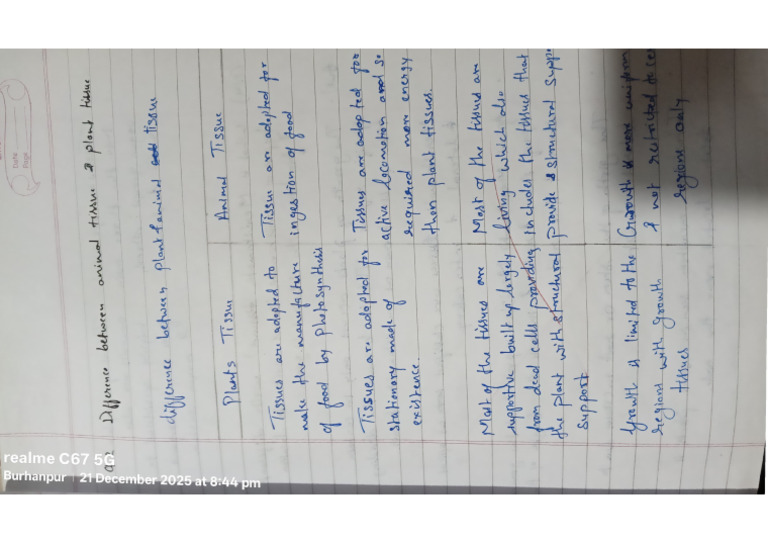 Difference between animal tissue & plant tissue
difference between plant & animal tissue
Plants Tissue
Animal Tissue
Tissues are adopted to
make the manufacture
of food by photosynthesis
Tissue are adopted for
ingestion of food
Tissues are adopted for
stationary made of
existence.
Tissues are adopted for
active locomotion and so
required more energy
then plant tissues.
Most of the tissues are
supportive built up largely
from dead cells providing
the plant with structural
support
Most of the tissues are
living which also
includes the tissues that
provide structural
Growth is limited to the
regions with growth
tissues
Growth is more uniform
& not restricted to
regions only
Date
Page
realme C67 5G
Burhanpur | 21 December 2025 at 8:44 pm